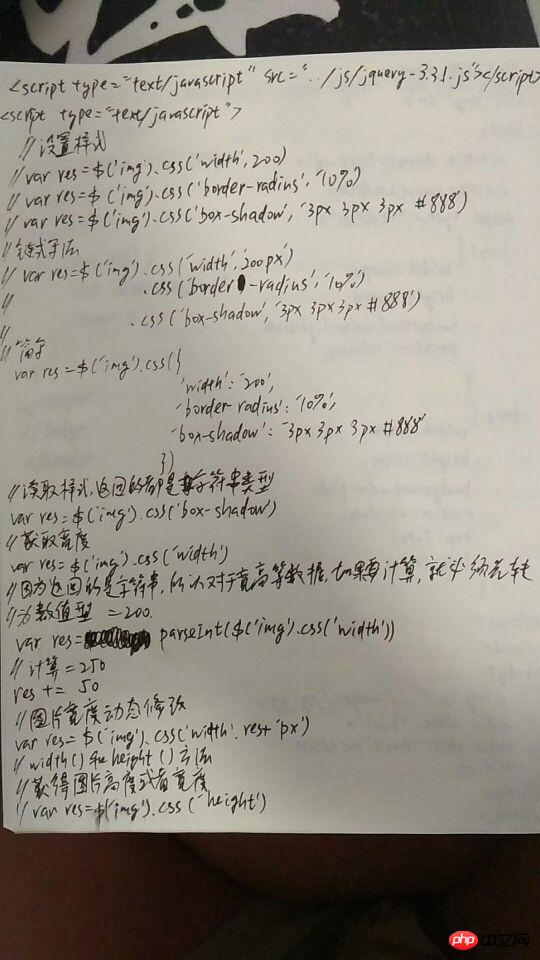 <script type="text/javascript" src="../js/jquery-3.3.1.js"></script>
<script type="text/javascript">
//设置样式
// var res=$('img').css('width',200)
// var res=$('img').css('border-radius','10%')
// var res=$('img').css('box-shadow','3px 3px 3px #888')
//链式写法
// var res=$('img').css('width','200px')
// .css('border-radius','10%')
// .css('box-shadow','3px 3px 3px #888')
//
//简写
var res=$('img').css({
'width':'200',
'border-radius':'10%',
'box-shadow':'3px 3px 3px #888'
})
//读取样式,返回的都是字符串类型
var res=$('img').css('box-shadow')
//获取宽度
var res=$('img').css('width')
//因为返回的是字符串,所以对于宽高等数据,如果要计算,就必须先转
//为数值型 =200.
var res= parseInt($('img').css('width'))
//计算=250
res += 50
//图片宽度动态修改
var res=$('img').css('width',res+'px')
// width()和height()方法
//获得图片高度或者宽度
// var res=$('img').css('height')
php中文网